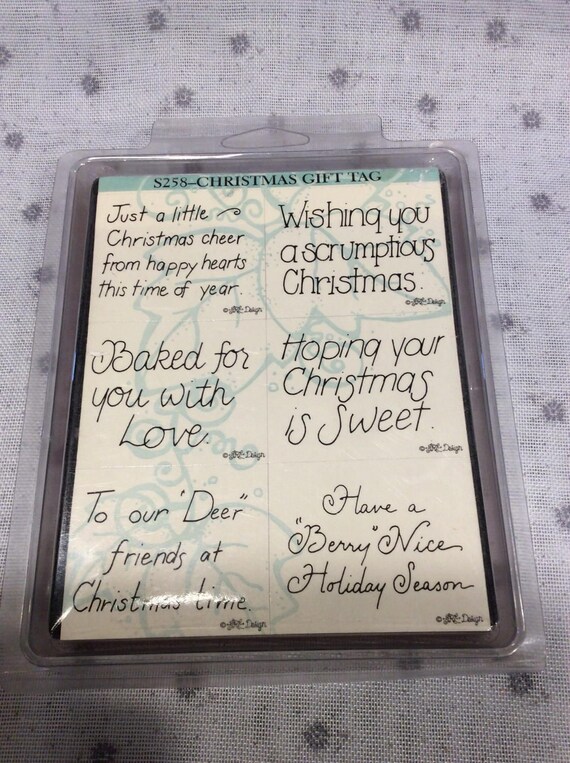 S258–CHRISTMAS GIFT TAG
Just a little
Christmas cheer
from happy hearts
this time of year.
Wishing you
a scrumptious
Christmas.
Baked for
you with
Love.
Hoping your
Christmas
is Sweet.
To our "Deer"
friends at
Christmas time.
Have a
"Berry" Nice
Holiday Season